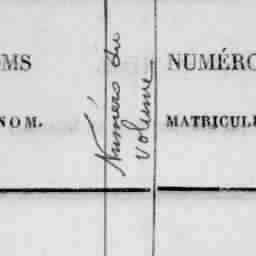 OMS
NOM.
Numéros du
volume
NUMÉRO
MATRICULE